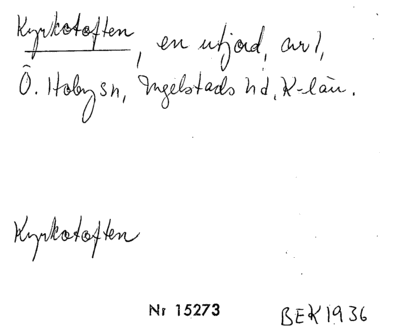 Kyrkotoften, en utjord, av 1,
Ö. Hoby sn, Ingelstads hd, K-län.
Kyrkotoften
Nr 15273
BEK 1936